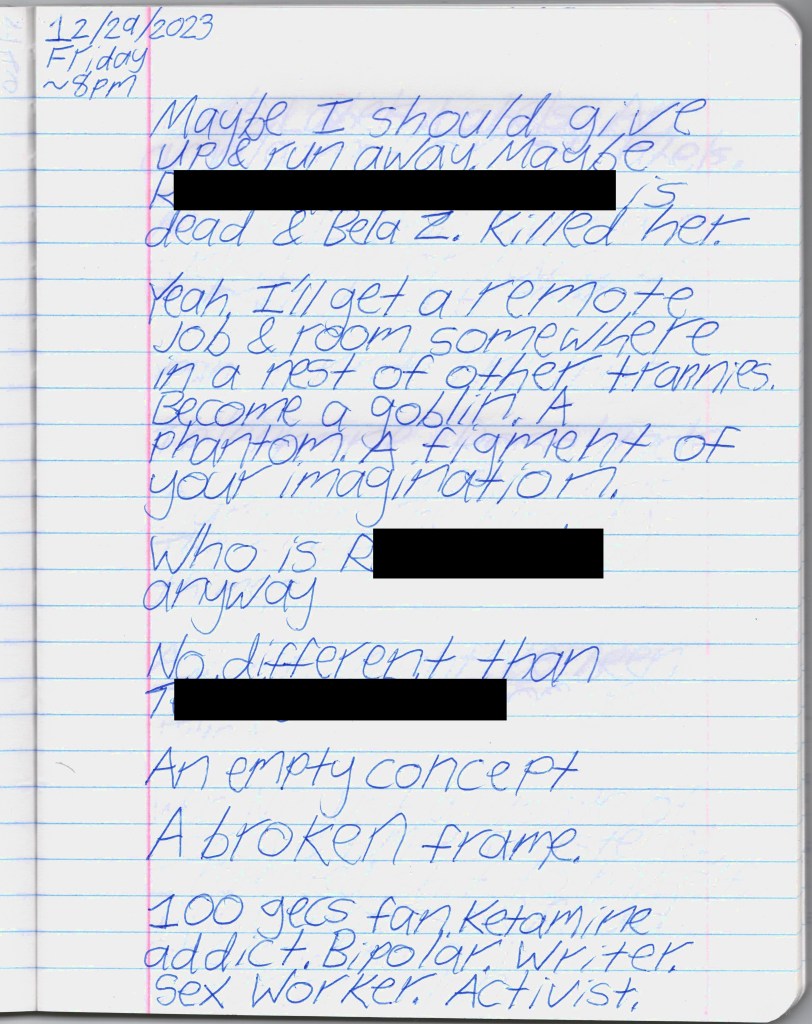 12/29/2023
Friday
~8pm
Maybe I should give
up & run away. Maybe
R is
dead & Bela Z. Killed her.
Yeah, I'll get a remote
Job & room somewhere
in a nest of other trannies.
Become a goblin. A
phantom. A figment of
your imagination.
Who is R
anyway
No different than
T
An empty concept
A broken frame.
100 gecs fan. Ketamine
addict. Bipolar. Writer.
Sex Worker. Activist.